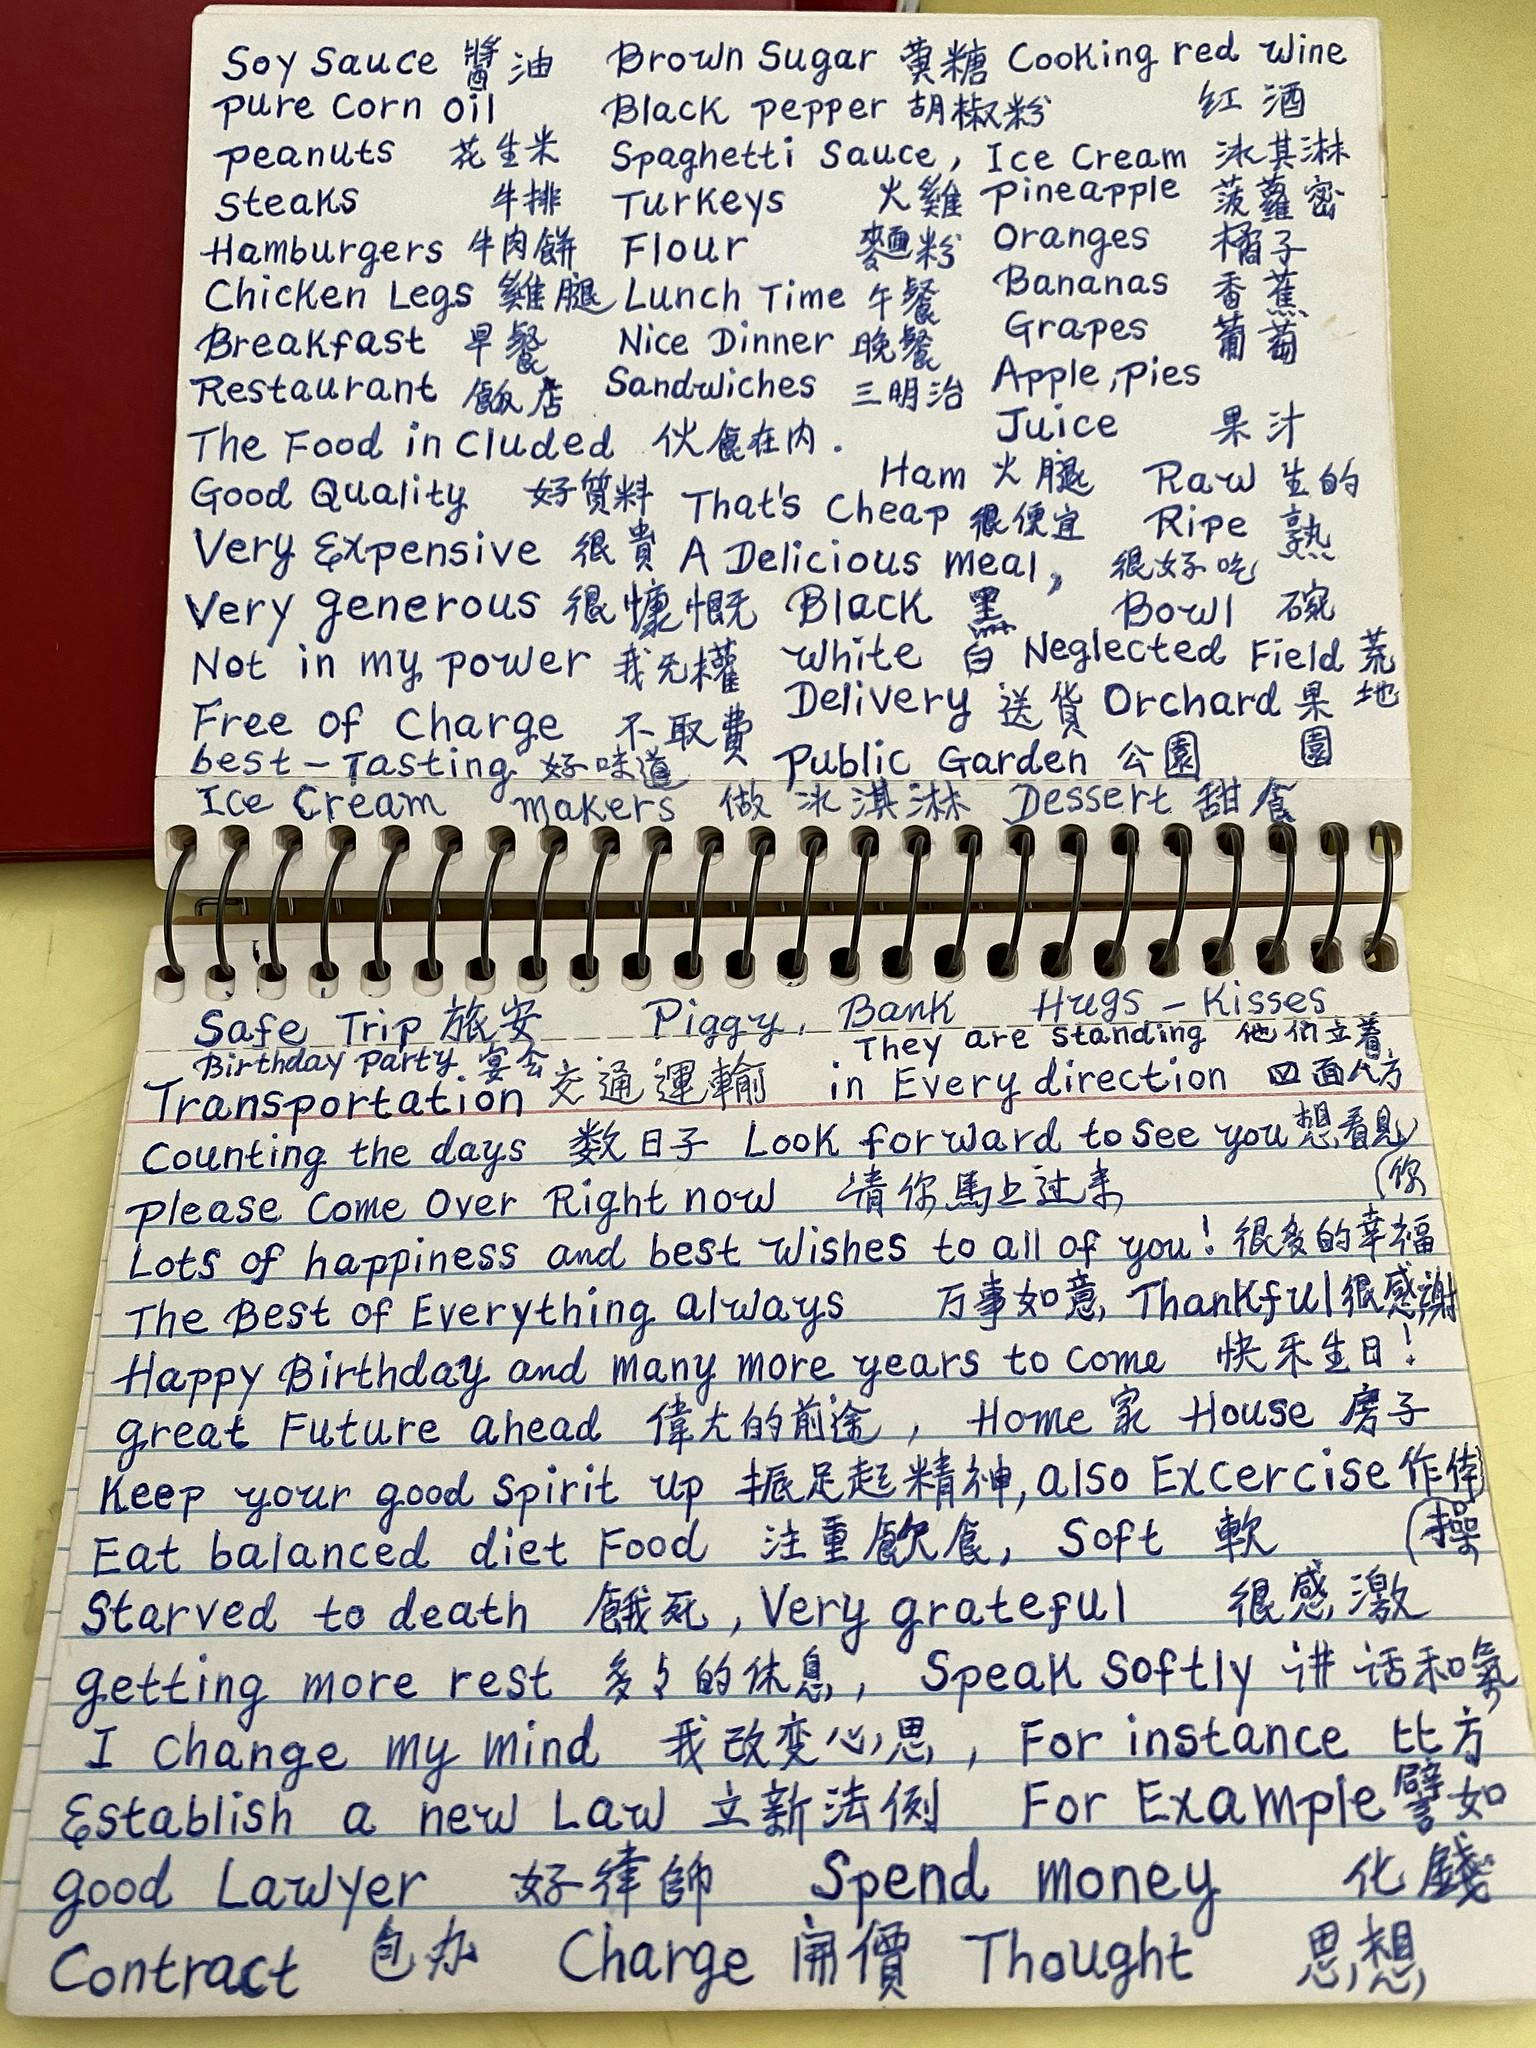 Soy Sauce 醬油 Brown Sugar 黄糖 Cooking red wine
pure Corn oil Black pepper 胡椒粉 红酒
peanuts 花生米 Spaghetti Sauce, Ice Cream 冰淇淋
Steaks 牛排 Turkeys 火雞 pineapple 菠蘿密
Hamburgers 牛肉餅 Flour 麵粉 Oranges 橘子
Chicken Legs 雞腿 Lunch Time 午餐 Bananas 香蕉
Breakfast 早餐 Nice Dinner 晚餐 Grapes 葡萄
Restaurant 飯店 Sandwiches 三明治 Apple, pies
The Food in Cluded 伙食在内. Juice 果汁
Good Quality 好質料 That's Cheap 很便宜 Ham 火腿 Raw 生的
Very Expensive 很貴 A Delicious meal, 很好吃 Ripe 熟
Very generous 很慷慨 Black 黑 Bowl 碗
Not in my power 我无權 White 白 Neglected Field 荒地
Free of Charge 不取費 Delivery 送貨 Orchard 果園
best-Tasting 好味道 Public Garden 公園
Ice Cream makers 做冰淇淋 Dessert 甜食
Safe Trip 旅安 Piggy, Bank Hugs-Kisses
Birthday party 宴会 They are standing 他们立着
Transportation 交通運輸 in Every direction 四面八方
Counting the days 数日子 Look forward to see you 想看見(你
please Come Over Right now 请你馬上过来
Lots of happiness and best wishes to all of you! 很多的幸福
The Best of Everything always 万事如意, Thankful 很感謝
Happy Birthday and many more years to come 快乐生日!
great Future ahead 偉大的前途, Home 家 House 房子
Keep your good Spirit up 振足起精神, also Excercise 作体(操
Eat balanced diet Food 注重飲食, Soft 軟
Starved to death 餓死, Very grateful 很感激
getting more rest 多々的休息, Speak Softly 讲话和氣
I Change my mind 我改变心思, For instance 比方
Establish a new Law 立新法例 For Example 譬如
good Lawyer 好律師 Spend money 化錢
Contract 包办 Charge 開價 Thought 思想